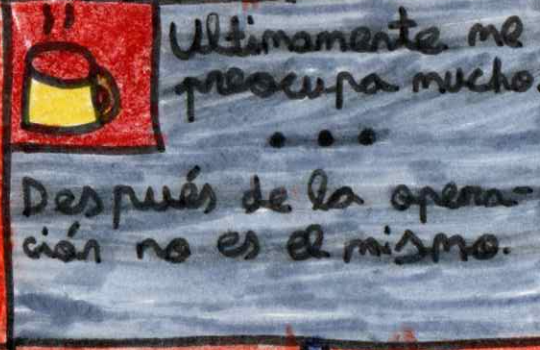 Ultimamente me
preocupa mucho.
• • •
Después de la opera-
ción no es el mismo.